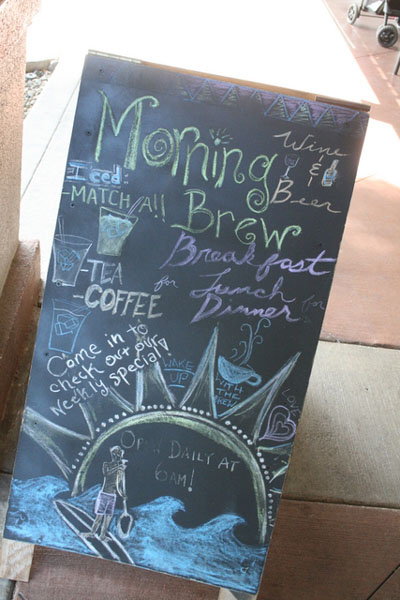 Morning
Brew
Wine
&
Beer
Iced:
-MATCHA!!
-TEA
-COFFEE
Breakfast
for Lunch for
Dinner
Come in to
check out our
weekly special!
WAKE
UP
WITH
THE
BREW
Open Daily at
6am!